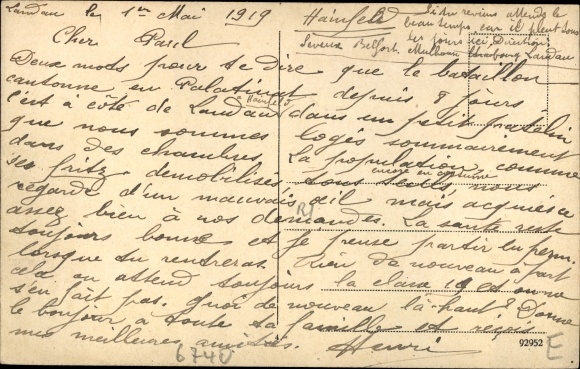 Landau le 1er Mai 1919
Hainfeld
Si tu reviens attends le
beau temps car il pleut tous
les jours ici. Direction
Belfort. Mulhouse Strasbourg Landau
Cher Paul
Deux mots pour te dire que le bataillon
cantonne en Palatinat depuis 8 jours
à Hainfeld
c'est à côté de Landau dans un petit patelin
que nous sommes logés sommairement
dans des chambres. La population comme
encore en costume
les fritz démobilisés tous seuls nous
regarde d'un mauvais œil mais acquiesce
assez bien à nos demandes. La santé est
toujours bonne et je pense partir en perm.
lorsque tu rentreras. Rien de nouveau à part
cela on attend toujours la classe 19 et on ne
s'en fait pas. Quoi de nouveau là-haut? Donne
le bonjour à toute ta famille et reçois
mes meilleures amitiés. Henri
R
6740
92952
E